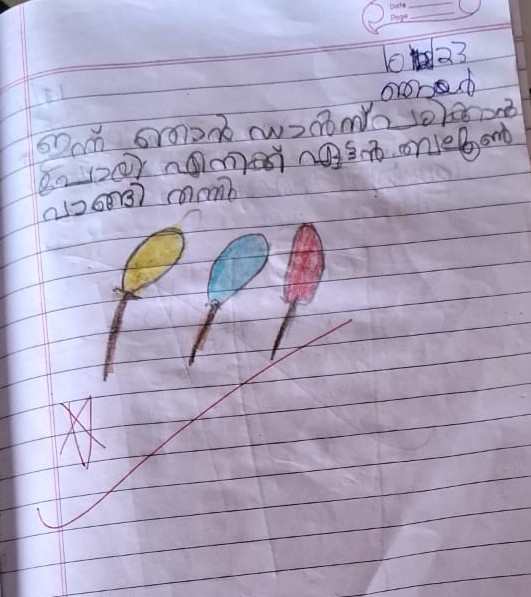 Date
Page
ഞായർ
ഇന്ന് ഞാൻ ഡാൻസ് പഠിക്കാൻ
പോയി എനിക്ക് ഏട്ടൻ ബലൂൺ
വാങ്ങി തന്നു